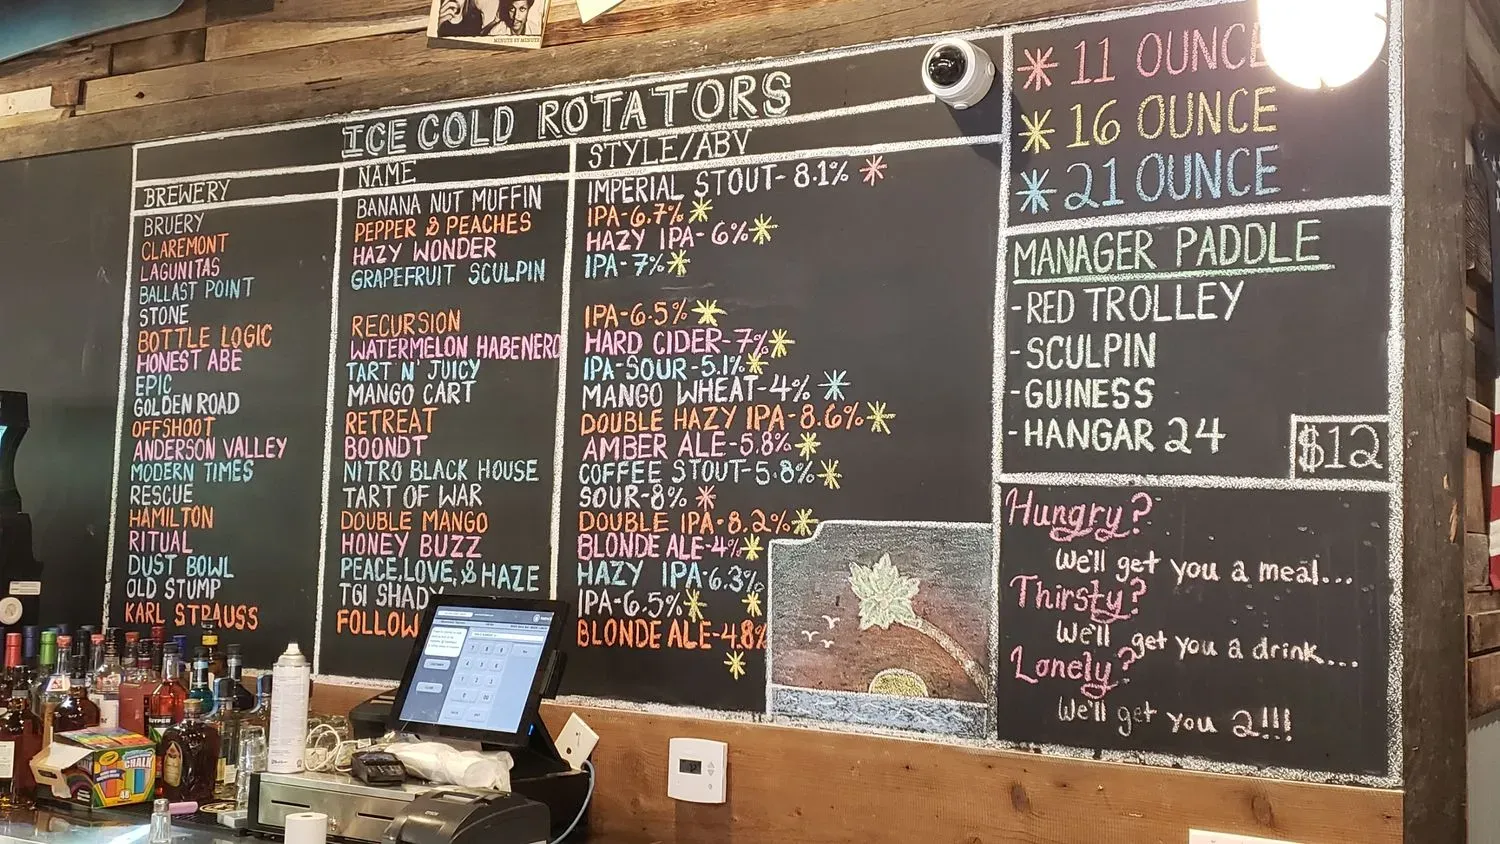 MINUTE BY MINUTE
ICE COLD ROTATORS
BREWERY NAME STYLE/ABV
BRUERY BANANA NUT MUFFIN IMPERIAL STOUT- 8.1% *
CLAREMONT PEPPER & PEACHES IPA-6.7% *
LAGUNITAS HAZY WONDER HAZY IPA- 6% *
BALLAST POINT GRAPEFRUIT SCULPIN IPA-7% *
STONE
BOTTLE LOGIC RECURSION IPA-6.5% *
HONEST ABE WATERMELON HABENERO HARD CIDER-7% *
EPIC TART N' JUICY IPA-SOUR-5.1% *
GOLDEN ROAD MANGO CART MANGO WHEAT-4% *
OFFSHOOT RETREAT DOUBLE HAZY IPA-8.6% *
ANDERSON VALLEY BOONDT AMBER ALE-5.8% *
MODERN TIMES NITRO BLACK HOUSE COFFEE STOUT-5.8% *
RESCUE TART OF WAR SOUR-8% *
HAMILTON DOUBLE MANGO DOUBLE IPA-8.2% *
RITUAL HONEY BUZZ BLONDE ALE-4% *
DUST BOWL PEACE, LOVE, & HAZE HAZY IPA-6.3% *
OLD STUMP TGI SHADY IPA-6.5% *
KARL STRAUSS FOLLOW BLONDE ALE-4.8% *
* 11 OUNCE
* 16 OUNCE
* 21 OUNCE
MANAGER PADDLE
-RED TROLLEY
-SCULPIN
-GUINESS
-HANGAR 24
$12
Hungry?
We'll get you a meal...
Thirsty?
We'll get you a drink...
Lonely?
We'll get you 2!!!
Crayola
CHALK